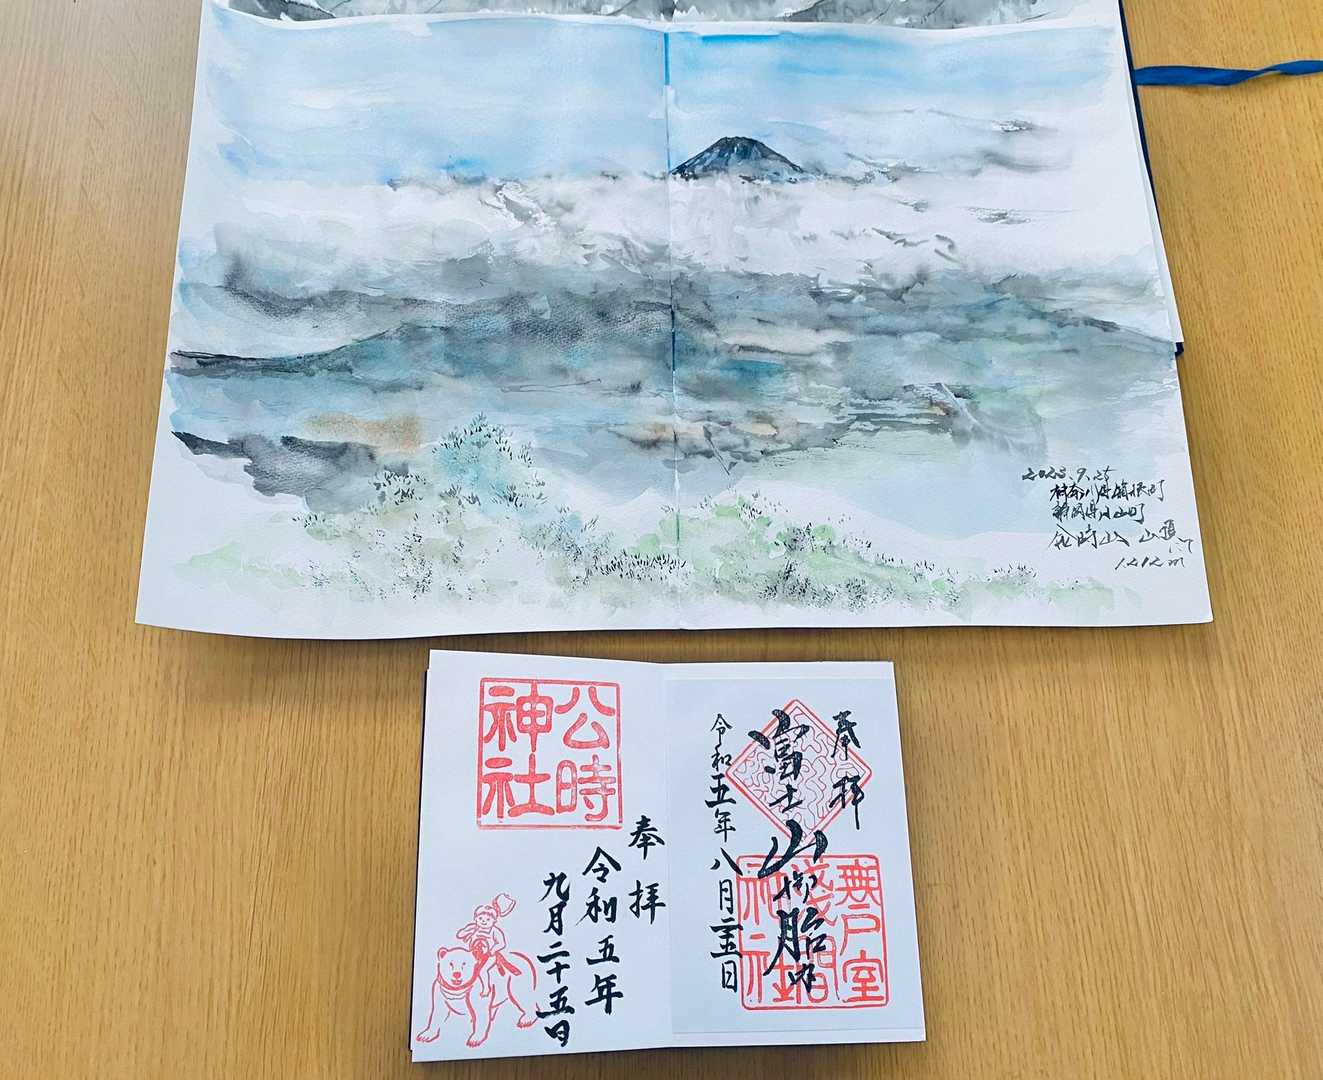 2023.9.25
神奈川県箱根町
静岡県小山町
金時山 山頂にて
1212m
公時
神社
奉拝
令和五年
九月二十五日
奉拝
富士山御胎内
令和五年八月二十五日
無戸室
浅間
神社